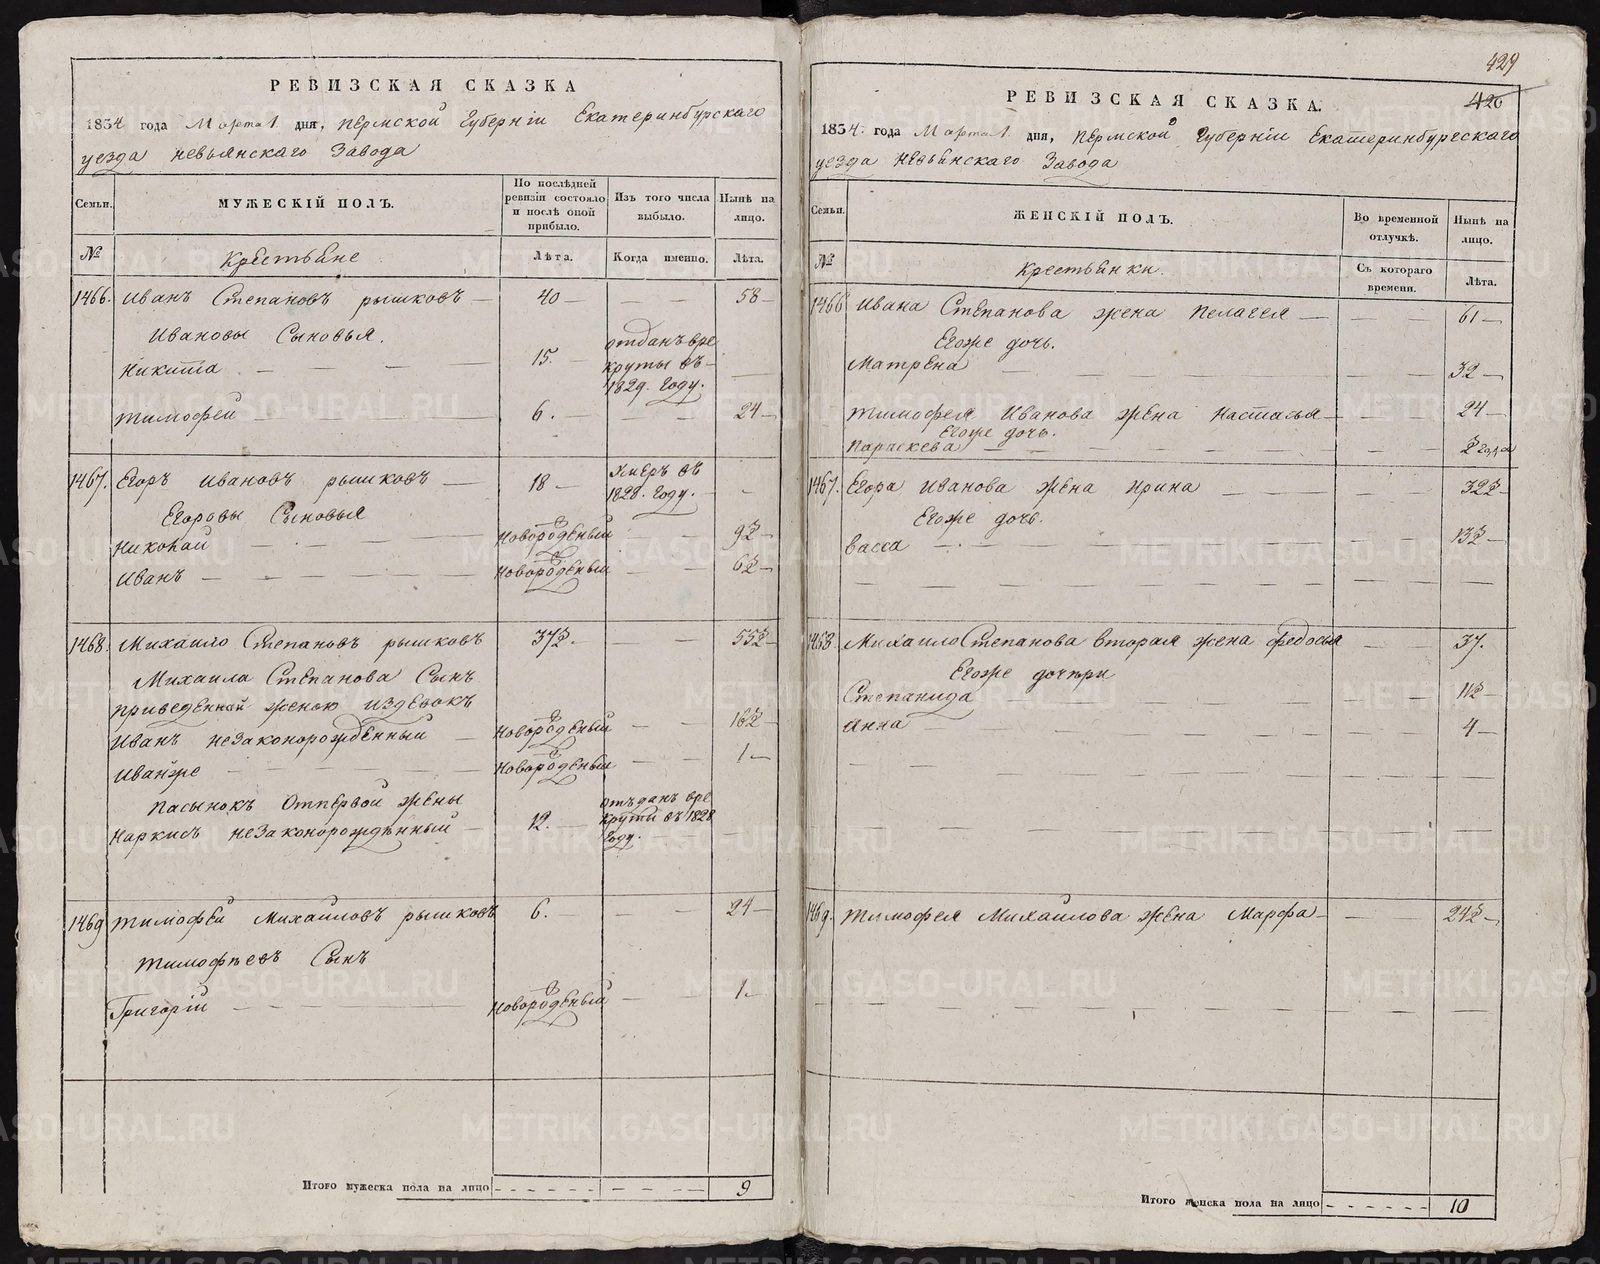 РЕВИЗСКАЯ СКАЗКА
1834 года Марта 1. дня, Пермской Губерніи Екатеринбурскаго
уезда Невьянскаго Завода
Семьи. МУЖЕСКІЙ ПОЛЪ. По послѣдней ревизіи состояло и послѣ оной прибыло. Изъ того числа выбыло. Нынѣ на лицо.
№ Крестьяне Лѣта. Когда именно. Лѣта.
1466. Иванъ Степановъ рышковъ 40 58
Ивановы Сыновья.
Никита 15. отданъ вре круты въ 1829. Году.
Тимофей 6. 24
1467. Егоръ Ивановъ рышковъ 18 Умеръ въ 1828. Году.
Егоровы Сыновья
Николай Новорожденый 9½
Иванъ Новорожденый 6½
1468. Михаило Степановъ рышковъ 37½. 55½
Михаила Степанова Сынъ
приведенной женою издевокъ
Иванъ незаконорожденный Новорожденый 16½
Иванже Новорожденый 1
Пасынокъ отпервой жены
Наркисъ незаконорожденный 12. отъданъ вре круты въ 1828 Году.
1469 Тимофей Михайловъ рышковъ 6. 24
Тимофеевъ Сынъ
Григорій Новорожденый 1.
Итого мужеска пола на лицо 9
429
420
РЕВИЗСКАЯ СКАЗКА.
1834: года Марта 1. дня, Пермской Губерніи Екатеринбургскаго
уезда Невьянскаго Завода
Семьи. ЖЕНСКІЙ ПОЛЪ. Во временной отлучкѣ. Нынѣ на лицо.
№ Крестьянки. Съ котораго времени. Лѣта.
1466 Ивана Степанова жена Пелагея 61
Егоже дочь.
Матрена 32
Тимофея Иванова жена Настасья 24
Егоже дочь.
Параскева 2 года
1467. Егора Иванова жена Ирина 32½
Егоже дочь.
Васса 13½
1468 Михаило Степанова вторая жена Федосья 37.
Егоже дочери
Степанида 11½
Анна 4
1469. Тимофея Михайлова жена Марфа 24½
Итого женска пола на лицо 10
METRIKI.GASO-URAL.RU